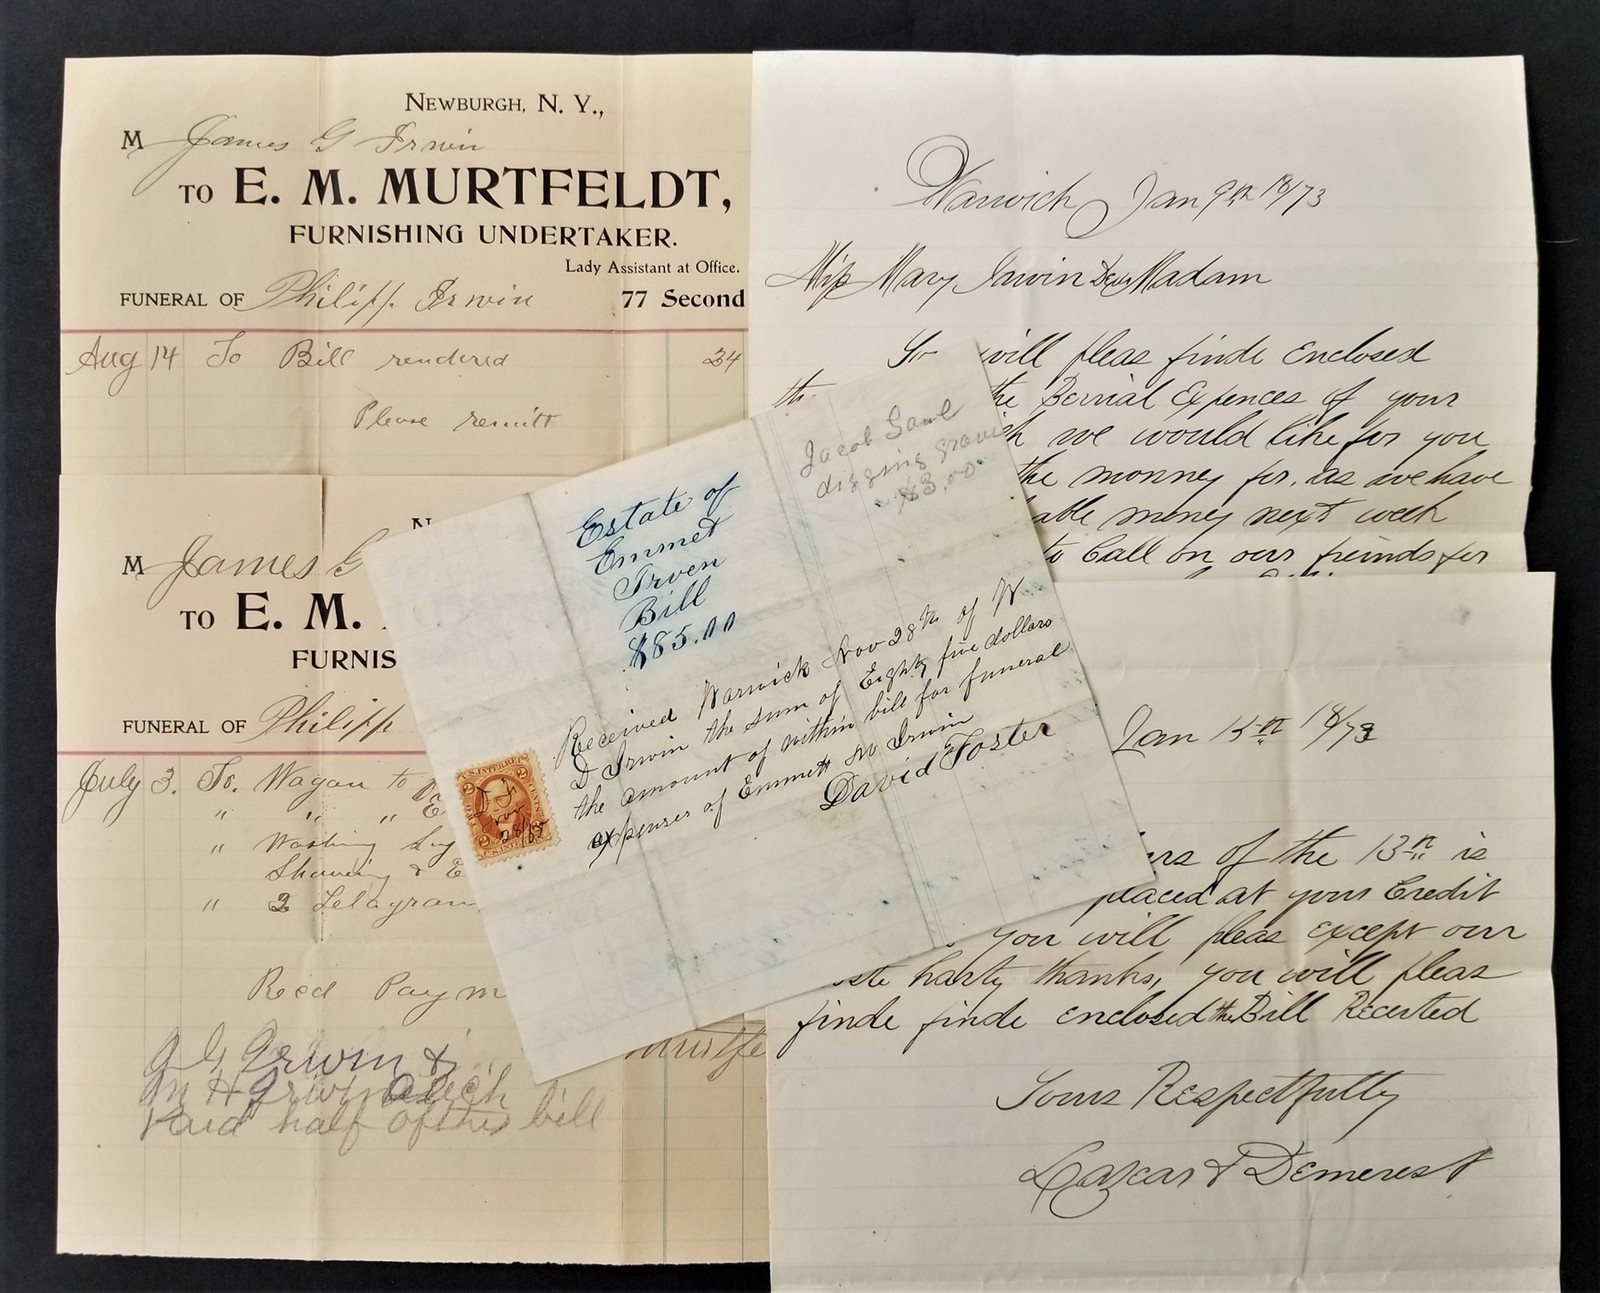 NEWBURGH, N. Y.,
M James G Irwin
TO E. M. MURTFELDT,
FURNISHING UNDERTAKER.
Lady Assistant at Office.
FUNERAL OF Philipp Irwin 77 Second
Aug 14 To Bill rendered 24
Please remitt
N
M James G
TO E. M.
FURNIS
FUNERAL OF Philipp
July 3. To Wagan to
" " "
" Washing
Shaving & E
" 2 Telagram
Recd Paym
J G Irwin &
M H Irwin each
Paid half of this bill
Estate of
Emmet
Irven
Bill
$85.00
Jacob Saul
digging grave
$3.00
Received Warwick Nov 28th of W
D Irwin the sum of Eighty five dollars
the amount of within bill for funeral
expenses of Emmett M Irwin
David Foster
U.S. INTER. RE
2 CENTS 2
Nov
28/
Warwick Jan 9th 18/73
Miss Mary Irwin Dear Madam
Yo will pleas finde Enclosed
th the Berrial Expences of your
h we would like for you
the monney for, as we have
able money next week
to Call on our freinds for
Jan 15th 18/73
rs of the 13th is
placed at your Credit
you will pleas except our
harty thanks, you will pleas
finde finde enclosed the Bill Receited
Yours Respectfully
Lazear & Demerest